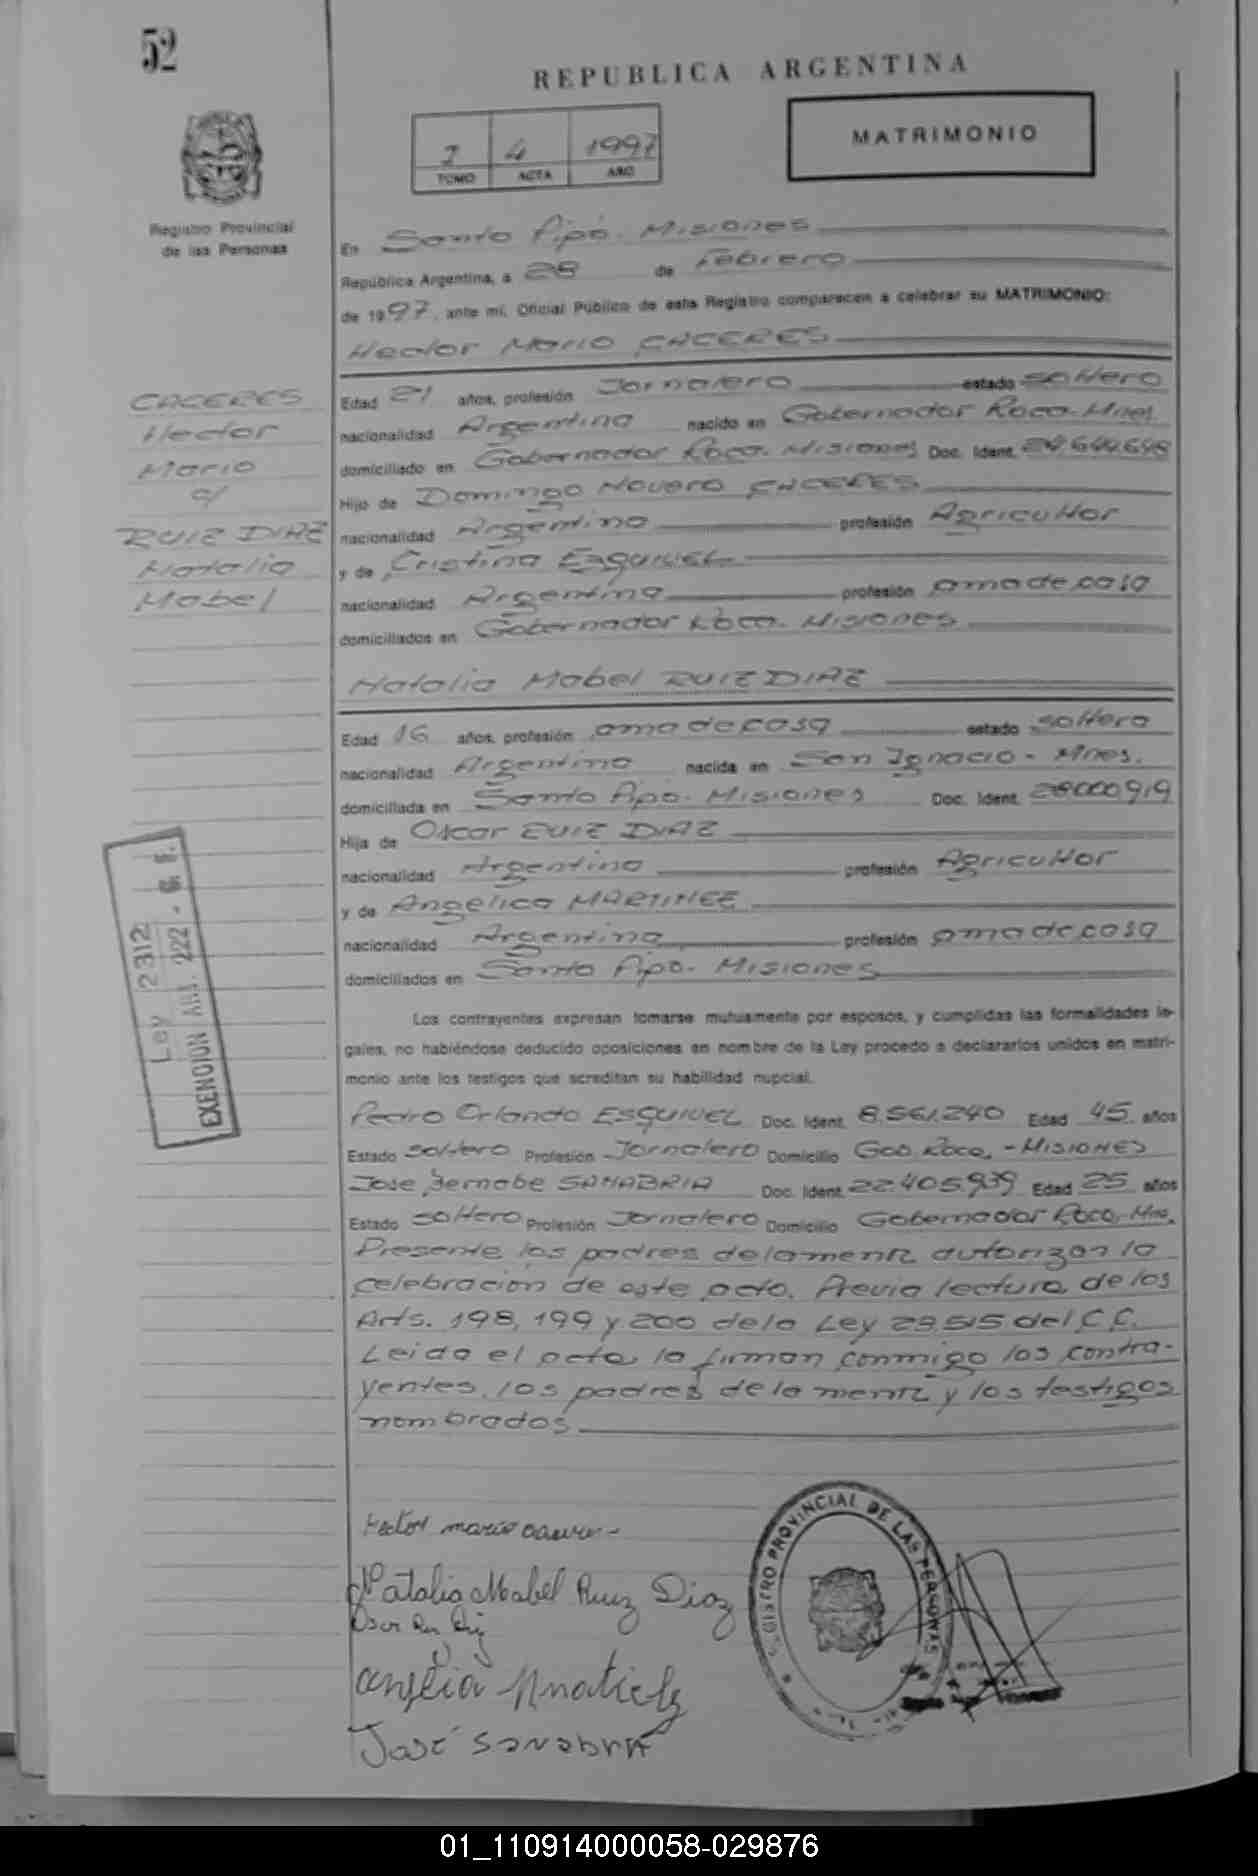 52
REPUBLICA ARGENTINA
1 4 1997
TOMO ACTA AÑO
MATRIMONIO
Registro Provincial
de las Personas
En Santo Pipó. Misiones
República Argentina, a 28 de Febrero
de 1997, ante mí, Oficial Público de este Registro comparecen a celebrar su MATRIMONIO:
Hector Mario CACERES
CACERES
Hector
Mario
c/
RUIZ DIAZ
Natalia
Mabel
Edad 21 años, profesión Jornalero estado soltero
nacionalidad Argentina nacido en Gobernador Roca-Mnes.
domiciliado en Gobernador Roca. Misiones Doc. Ident. 24.644.648
Hijo de Domingo CACERES
nacionalidad Argentina profesión Agricultor
y de Cristina ESQUIVEL
nacionalidad Argentina profesión ama de casa
domiciliados en Gobernador Roca. Misiones
Natalia Mabel RUIZ DIAZ
Edad 16 años, profesión ama de casa estado soltera
nacionalidad Argentina nacida en San Ignacio - Mnes.
domiciliada en Santo Pipo. Misiones Doc. Ident. 28000919
Hija de Oscar RUIZ DIAZ
nacionalidad Argentina profesión Agricultor
y de Angelica MARTINEZ
nacionalidad Argentina profesión ama de casa
domiciliados en Santo Pipo. Misiones
Ley 2312
EXENCION ART. 222
Los contrayentes expresan tomarse mutuamente por esposos, y cumplidas las formalidades le-
gales, no habiéndose deducido oposiciones en nombre de la Ley procedo a declararlos unidos en matri-
monio ante los testigos que acreditan su habilidad nupcial.
Pedro Orlando ESQUIVEL Doc. Ident. 8.561.240 Edad 45 años
Estado soltero Profesión Jornalero Domicilio Gob. Roca, -MISIONES
Jose Bernabe SANABRIA Doc. Ident. 22.405.939 Edad 25 años
Estado soltero Profesión Jornalero Domicilio Gobernador Roca, Mnes.
Presente los padres de la menor autorizan la
celebración de este acto. Previa lectura de los
Arts. 198, 199 y 200 de la Ley 23.515 del C.C.
Leida el acta, la firman conmigo los contra-
yentes, los padres de la menor y los testigos
nombrados
Hector mario
Natalia Mabel Ruiz Diaz
José Sanabria
REGISTRO PROVINCIAL DE LAS PERSONAS
01_110914000058-029876